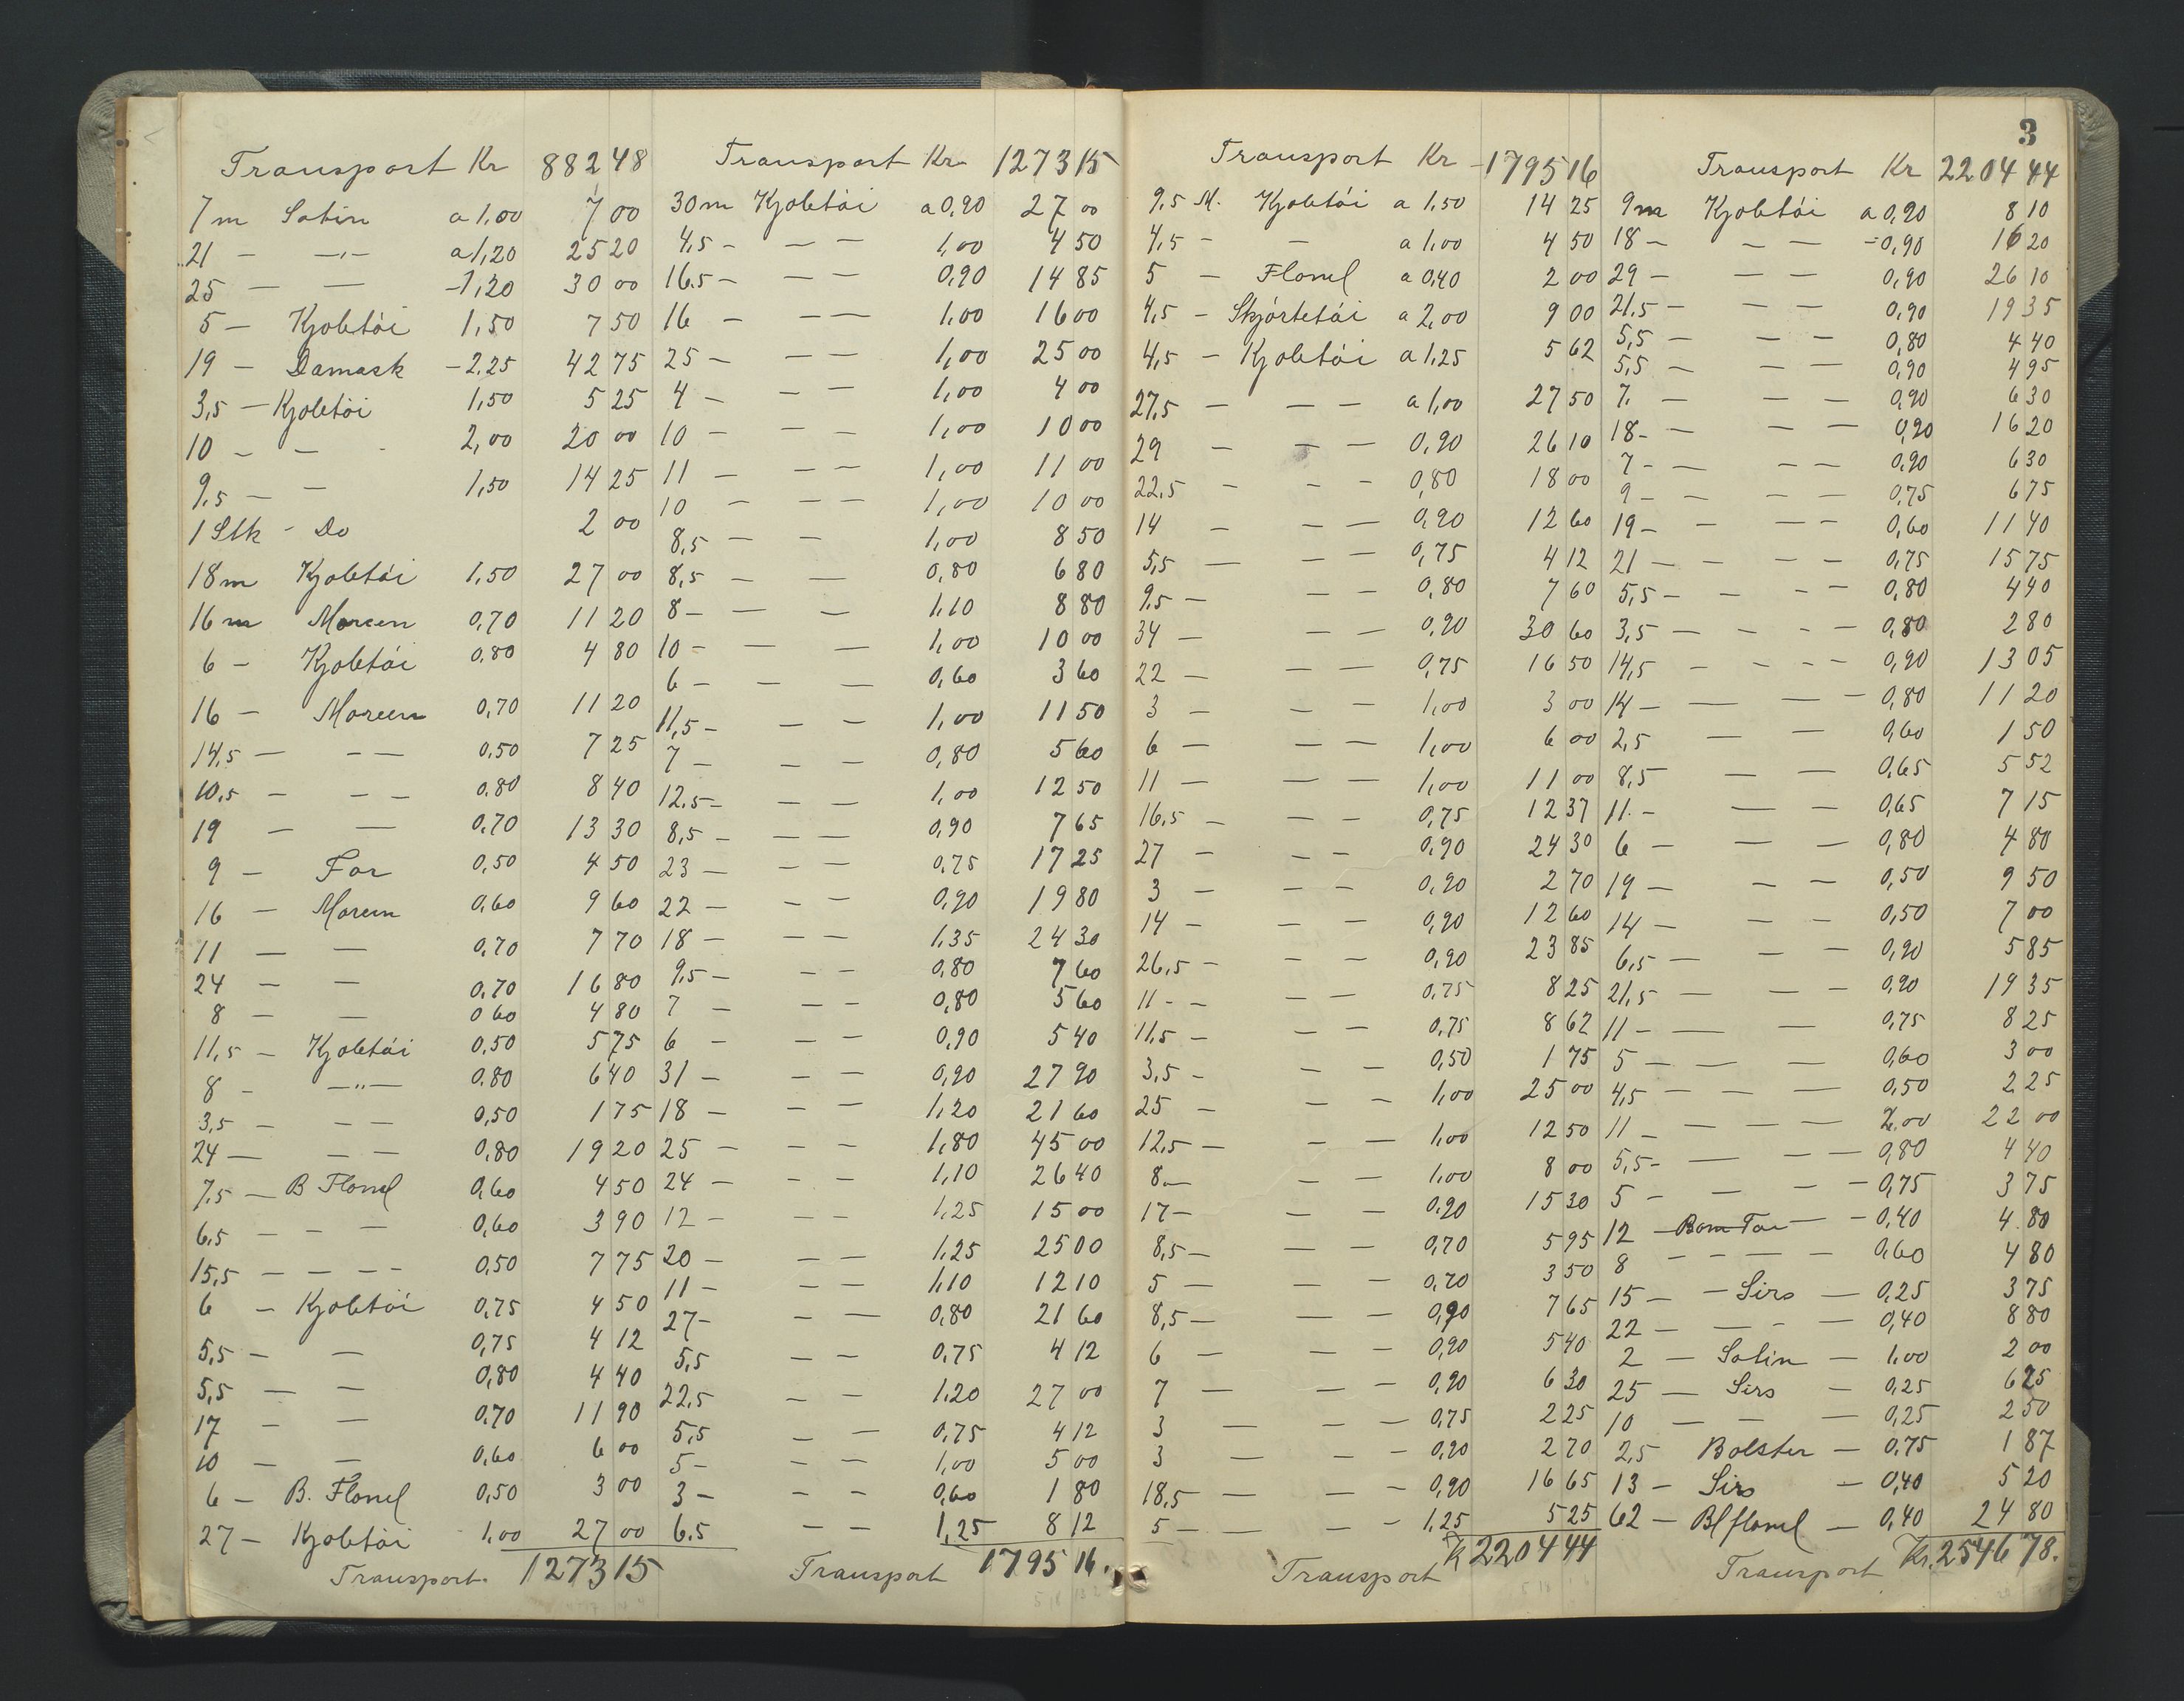 Transport Kr 882 48
7 m Satin a 1,00 7 00
21 — —"— a 1,20 25 20
25 — — -1,20 30 00
5 — Kjoletöi 1,50 7 50
19 — Damask -2,25 42 75
3,5 — Kjoletöi 1,50 5 25
10 - - - 2,00 20 00
9,5 — — 1,50 14 25
1 Stk - Do 2 00
18 m Kjoletöi 1,50 27 00
16 m Moreen 0,70 11 20
6 - Kjoletöi 0,80 4 80
16 — Moreen 0,70 11 20
14,5 — — — 0,50 7 25
10,5 — — — 0,80 8 40
19 — — 0,70 13 30
9 — For 0,50 4 50
16 — Moreen 0,60 9 60
11 — — 0,70 7 70
24 — — 0,70 16 80
8 — — 0 60 4 80
11,5 — Kjoletöi 0,50 5 75
8 - —"— 0,80 6 40
3,5 — — — 0,50 1 75
24 — — — 0,80 19 20
7,5 — B Flonel 0,60 4 50
6,5 — — — 0,60 3 90
15,5 — — — — 0,50 7 75
6 — Kjoletöi 0,75 4 50
5,5 — — 0,75 4 12
5,5 — — 0,80 4 40
17 — — 0,70 11 90
10 — — 0,60 6 00
6 — B. Flonel 0,50 3 00
27 — Kjoletöi 1,00 27 00
Transport. 1273 15
Transport Kr. 1273 15
30 m Kjoletöi a 0,90 27 00
4,5 — — — 1,00 4 50
16,5 — — — 0,90 14 85
16 — — — 1,00 16 00
25 — — — 1,00 25 00
4 — — — 1,00 4 00
10 — — — 1,00 10 00
11 — — — 1,00 11 00
10 — — — 1,00 10 00
8,5 — — 1,00 8 50
8,5 — — 0,80 6 80
8 — — — 1,10 8 80
10 — — — 1,00 10 00
6 — — — 0,60 3 60
11,5 — — — 1,00 11 50
7 — — — 0,80 5 60
12,5 — — — 1,00 12 50
8,5 — — — 0,90 7 65
23 — — — 0,75 17 25
22 — — — 0,90 19 80
18 — — — 1,35 24 30
9,5 — — — 0,80 7 60
7 — — — 0,80 5 60
6 — — — 0,90 5 40
31 — — — 0,90 27 90
18 — — — 1,20 21 60
25 — — — 1,80 45 00
24 — — — 1,10 26 40
12 — — — 1,25 15 00
20 — — — 1,25 25 00
11 — — — 1,10 12 10
27 — — — 0,80 21 60
5,5 — — 0,75 4 12
22,5 — — 1,20 27 00
5,5 — — 0,75 4 12
5 — — — 1,00 5 00
3 — — — 0,60 1 80
6,5 — — 1,25 8 12
Transport 1795 16.
Transport Kr 1795 16
9,5 M. Kjoletöi a 1,50 14 25
4,5 — — a 1,00 4 50
5 — Flonel a 0,40 2 00
4,5 — Skjörtetöi a 2,00 9 00
4,5 — Kjoletöi a 1,25 5 62
27,5 — — — a 1,00 27 50
29 — — — 0,90 26 10
22,5 — — — 0,80 18 00
14 — — — 0,90 12 60
5,5 — — — 0,75 4 12
9,5 — — — 0,80 7 60
34 — — — 0,90 30 60
22 — — — 0,75 16 50
3 — — — 1,00 3 00
6 — — — 1,00 6 00
11 — — — 1,00 11 00
16,5 — — — 0,75 12 37
27 — — — 0,90 24 30
3 — — — 0,90 2 70
14 — — — 0,90 12 60
26,5 — — — 0,90 23 85
11 - — — — 0,75 8 25
11,5 — — — 0,75 8 62
3,5 — — — 0,50 1 75
25 — — — 1,00 25 00
12,5 — — — 1,00 12 50
8 — — — 1,00 8 00
17 — — — 0,90 15 30
8,5 — — — 0,70 5 95
5 — — — 0,70 3 50
8,5 — — — 0,90 7 65
6 — — — 0,90 5 40
7 — — — 0,90 6 30
3 — — — 0,75 2 25
3 — — — 0,90 2 70
18,5 — — — 0,90 16 65
5 — — — 1,25 5 25
Transport K 2204 44
3
Transport Kr 2204 44
9 m Kjoletöi a 0,90 8 10
18 — — — -0,90 16 20
29 — — — 0,90 26 10
21,5 — — — 0,90 19 35
5,5 — — — 0,80 4 40
5,5 — — — 0,90 4 95
7. — — — 0,90 6 30
18 - — — — 0,90 16 20
7 - — — — 0,90 6 30
9 — — — — 0,75 6 75
19 — — — — 0,60 11 40
21 — — — — 0,75 15 75
5,5 — — — — 0,80 4 40
3,5 — — — — 0,80 2 80
14,5 — — — — 0,90 13 05
14 — — — — 0,80 11 20
2,5 — — 0,60 1 50
8,5 — — 0,65 5 52
11 - — — 0,65 7 15
6 — — — 0,80 4 80
19 — — — 0,50 9 50
14 — — — 0,50 7 00
6,5 — — — 0,90 5 85
21,5 — — — 0,90 19 35
11 — — — — 0,75 8 25
5 — — — 0,60 3 00
4,5 — — — 0,50 2 25
11 — — — — 2,00 22 00
5,5 — — — — 0,80 4 40
5 — — — — 0,75 3 75
12 — Bom Tøi — 0,40 4 80
8 — — — — 0,60 4 80
15 — — Sirs — 0,25 3 75
22 — — - — 0,40 8 80
2 — Satin — 1,00 2 00
25 — Sirs — 0,25 6 25
10 — — — 0,25 2 50
2,5 Bolster — 0,75 1 87
13 — Sirs — 0,40 5 20
62 — Blflonel — 0,40 24 80
Transport Kr. 2546 78.